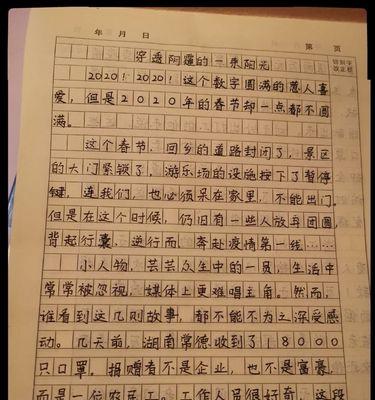 年 月 日
第 页
错别字
改正栏
穿透阴霾的一束阳光
2020!2020!这个数字圆满的惹人喜
爱,但是2020年的春节却一点都不圆
满。
这个春节,回乡的道路封闭了,景区
的大门紧锁了,游乐场的设施按下了暂停
键,连我们,也必须呆在家里,不能出门,
但是在这个时候,仍旧有一些人放弃团圆
背起行囊,逆行而,奔赴疫情第一线……
小人物,芸芸众生中的一员,生活中
常常被忽视,媒体上更难唱主角。然而,
谁看到这几则故事,都不能不为之深受感
动。几天前,湖南常德收到了18000
只口罩。捐赠者不是企业,也不是富豪,
而是一位农民工。工作人员很好奇,这段